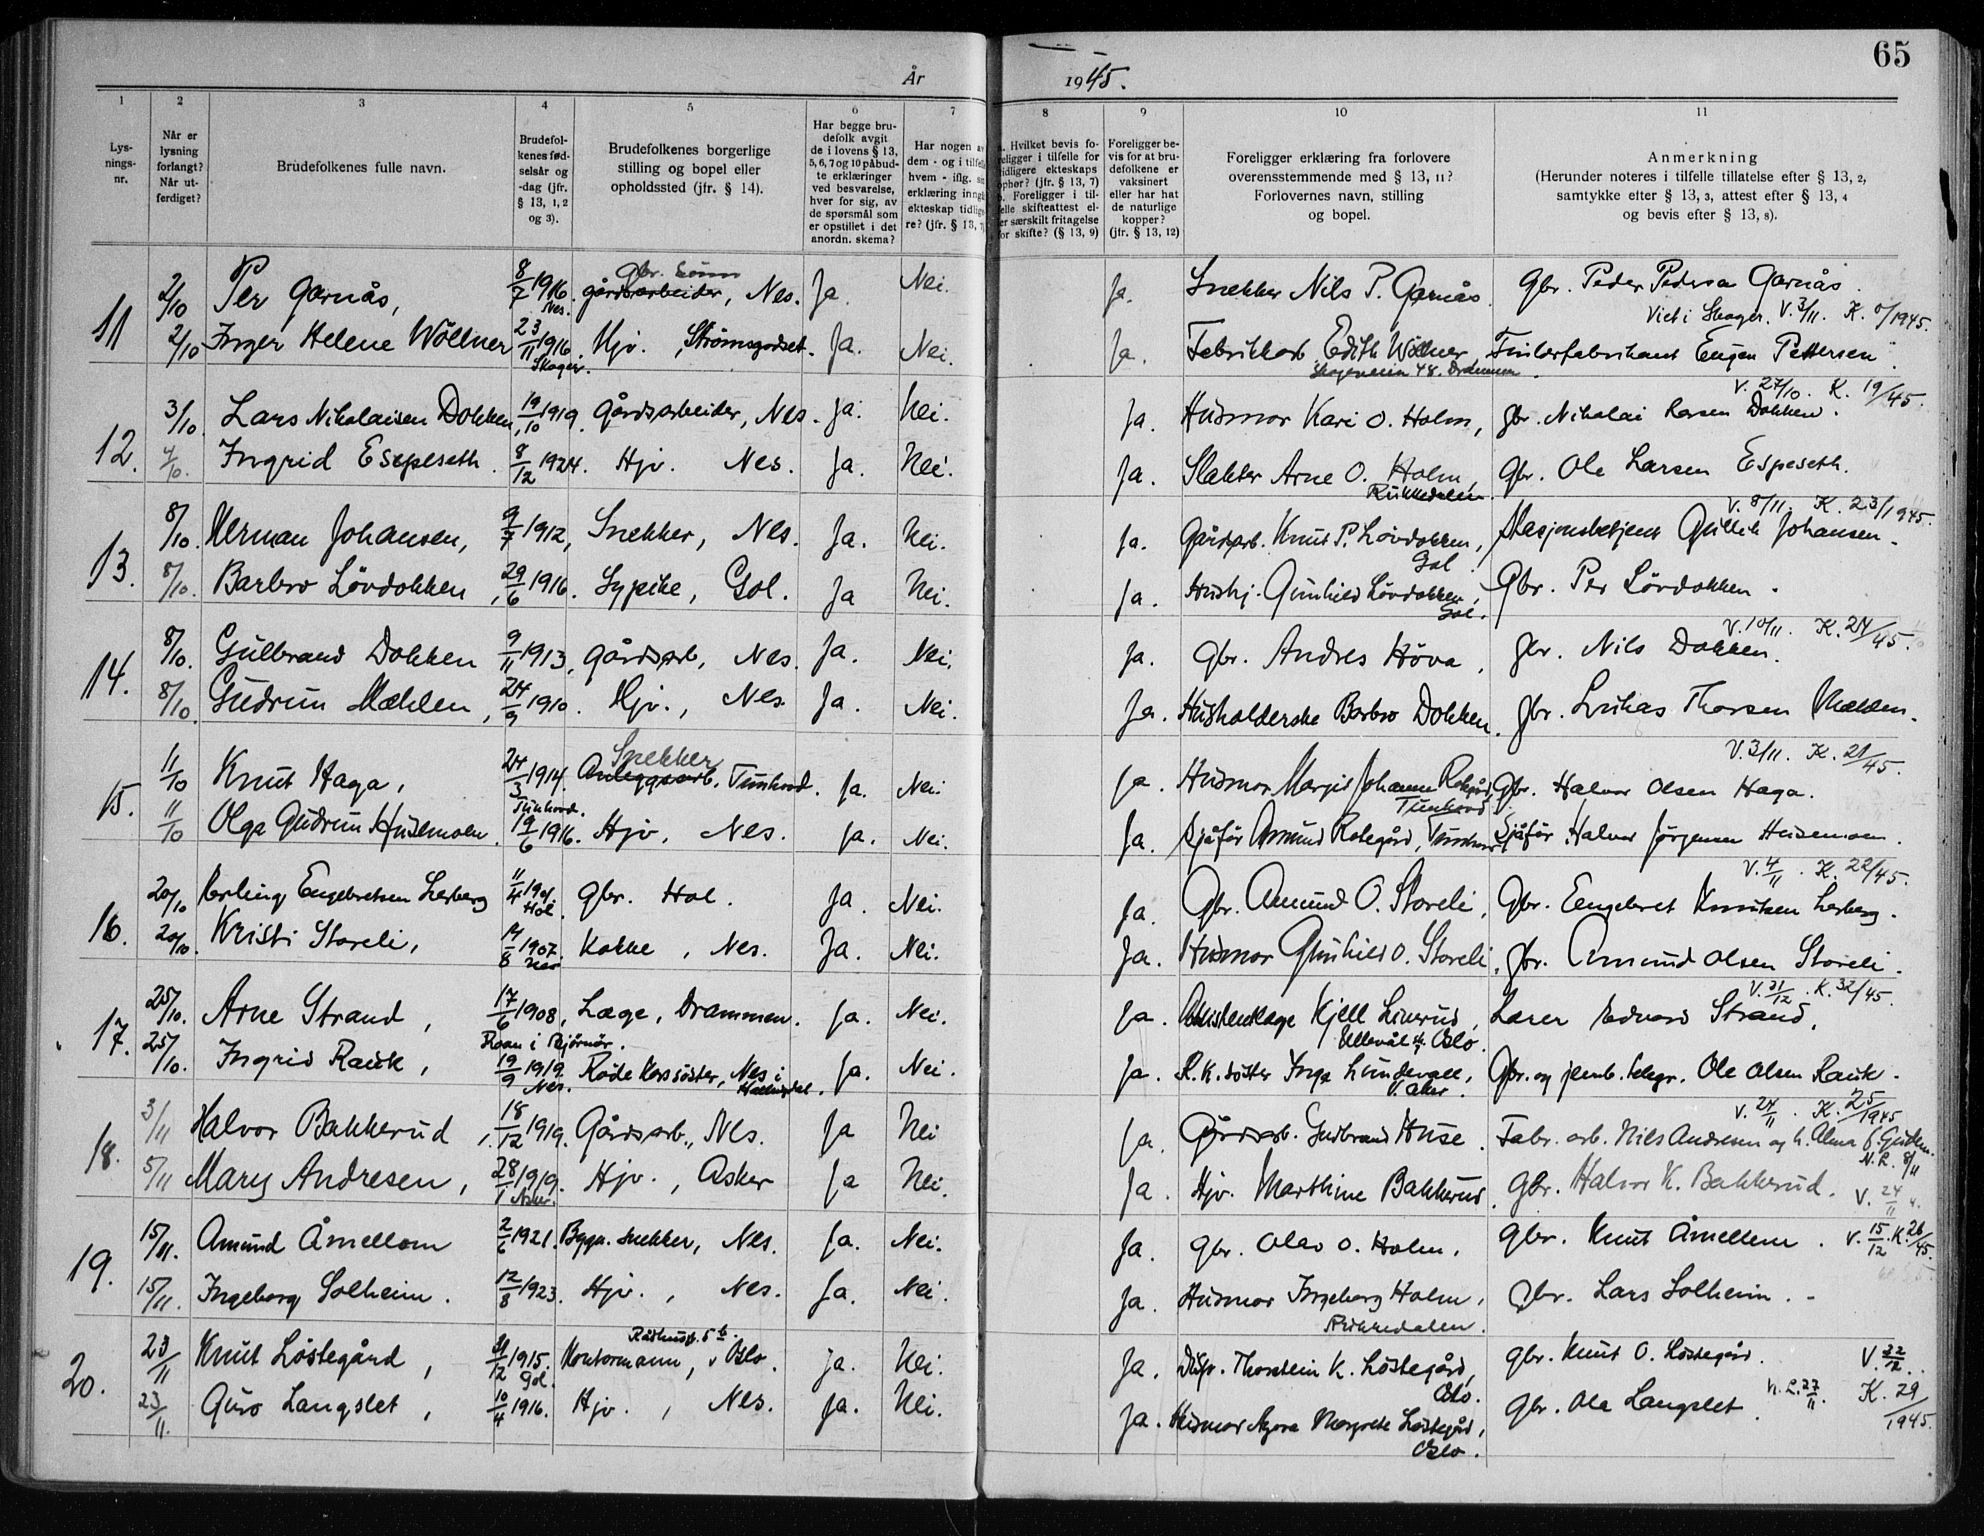 65
År 1945.
1 2 3 4 5 6 7 8 9 10 11
Lys-
nings-
nr.
Når er
lysning
forlangt?
Når ut-
ferdiget?
Brudefolkenes fulle navn.
Brudefol-
kenes fød-
selsår og
-dag (jfr.
§ 13, 1, 2
og 3).
Brudefolkenes borgerlige
stilling og bopel eller
opholdssted (jfr. § 14).
Har begge bru-
defolk avgit
de i lovens § 13,
5, 6, 7 og 10 påbud-
te erklæringer
ved besvarelse,
hver for sig, av
de spørsmål som
er opstillet i det
anordn. skema?
Har nogen av
dem - og i tilfelle
hvem - iflg. sin
erklæring inngått
ekteskap tidlige-
re? (jfr. § 13, 7)
a. Hvilket bevis fo-
religger i tilfelle for
tidligere ekteskaps
ophør? (jfr. § 13, 7)
b. Foreligger i til-
felle skifteattest el-
ler særskilt fritagelse
for skifte? (§ 13, 9)
Foreligger be-
vis for at bru-
defolkene er
vaksinert
eller har hat
de naturlige
kopper?
(jfr. § 13, 12)
Foreligger erklæring fra forlovere
overensstemmende med § 13, 11?
Forlovernes navn, stilling
og bopel.
Anmerkning
(Herunder noteres i tilfelle tillatelse efter § 13, 2,
samtykke efter § 13, 3, attest efter § 13, 4
og bevis efter § 13, 8).
11 2/10 Per Garnås, 8/7 1916. Nes. gårdsarbeider, Gbr. sønn Nes. Ja. Nei. Ja. Snekker Nils P. Garnås. Gbr. Peder Pedersen Garnås.
Viet i Skoger. V. 3/11. K. /1945.
2/10 Inger Helene Wöllner 23/11 1916. Skoger. Hjv. Strømsgodset. Ja. Nei. Ja. Fabrikkarb. Edith Wöllner, Skogerveien 48. Drammen. Eugen Pettersen
V. 27/10. K. 19/45.
12. 3/10. Lars Nikolaisen Dokken, 19/10 1919. Gårdsarbeider, Nes. Ja. Nei. Ja. Husmor Kari O. Holm, gbr. Nikolai Larsen Dokken.
4/10. Ingrid Espeseth. 8/12 1924. Hjv. Nes. Ja. Nei. Ja. Slakter Arne O. Holm, Rukkedalen. Gbr. Ole Larsen Espeseth.
V. 8/11. K. 23/1945.
13. 8/10. Herman Johansen, 9/7 1912, Snekker, Nes. Ja. Nei. Ja. Gårdsarb. Knut P. Løvdokken, Gol. Stasjonsbetjent Gullik Johansen.
8/10. Barbro Lövdokken, 29/6 1916. Sypike, Gol. Ja Nei. Ja. Hushj. Gunhild Løvdokken, Gol. Gbr. Per Lövdokken.
V. 10/11. K. 24/45.
14. 8/10. Gulbrand Dokken 9/11 1913, gårdsarb, Nes. Ja. Nei. Ja. Gbr. Andres Höva, gbr. Nils Dokken.
8/10. Gudrun Mæhlen, 24/9 1910. Hjv., Nes. Ja. Nei. Ja. Husholderske Barbro Dokken. gbr. Lukas Thorsen Mæhlen.
V. 3/11. K. 21/45.
15. 11/10 Knut Haga, 24/3 1914. Tunhovd. Anleggsarb. Snekker Tunhovd. Ja. Nei. Ja. Husmor Margit Johanne Rotegård, Tunhovd. Gbr. Halvor Olsen Haga.
11/10 Olga Gudrun Husemoen. 19/6 1916. Hjv, Nes. Ja. Nei. Ja. Sjåfør Amund Rotegård, Tunhovd. Sjåfør Halvor Jørgensen Husemoen.
V. 4/11. K. 22/45.
16. 20/10 Herling Engebretsen Lerberg 11/4 1901. Hol. gbr. Hol. Ja. Nei. Ja. Gbr. Amund O. Storeli, Gbr. Engebret Knutsen Lerberg.
20/10. Kristi Storeli, 14/8 1907. Nes Kokke, Nes. Ja. Nei. Ja. Husmor Gunhild O. Storeli, gbr. Amund Olsen Storeli.
V. 31/12. K. 32/45.
17. 25/10. Arne Strand, 17/6 1908, Roan i Bjørnør. Læge, Drammen. Ja. Nei. Ja. Assistentlæge Kjell Linerud, Ullevål sk. Oslo. Lærer Edvard Strand,
25/10. Ingrid Rauk, 19/9 1919. Nes. Røde Korssøster, Nes i Hallingdal. Ja. Nei. Ja. R.K. søster Inga Lundevall, V. Aker. Gbr. og jernb. telegr. Ole Olsen Rauk.
V. 24/11. K. 25/1945
18. 3/11 Halvor Bakkerud, 18/12 1919. Gårdsarb., Nes. Ja Nei Ja. Gårdsarb. Gudbrand Huse. Fabr. arb. Nils Andresen og h. Alma f.
N.L. 8/11
5/11 Mary Andresen, 28/1 1919. Asker. Hjv., Asker Ja Nei. Ja. Hjv. Marthine Bakkerud. gbr. Halvor K. Bakkerud. V. 24/11
19. 15/11. Amund Åmellom 2/6 1921. Bygn. snekker, Nes. Ja. Nei. Ja. gbr. Olav O. Holm. gbr. Knut Åmellem. V. 15/12. K. 26/45.
15/11. Ingeborg Solheim. 12/8 1923. Hjv., Nes. Ja. Nei. Ja. Husmor Ingeborg Holm, Rukkedalen. gbr. Lars Solheim.
20. 23/11 Knut Løstegård, 31/12 1915. Gol. Kontormann, Rådhusg. 5 b. Oslo. Ja. Nei. Ja. Disp. Thorstein K. Løstegård, Oslo. gbr. Knut O. Løstegård. V. 22/12.
23/11. Guro Langslet, 10/4 1916. Hjv., Nes. Ja. Nei. Ja. Husmor Margrete Løstegård, Oslo. gbr. Ole Langslet. N.L. 27/11. K. 29/1945.